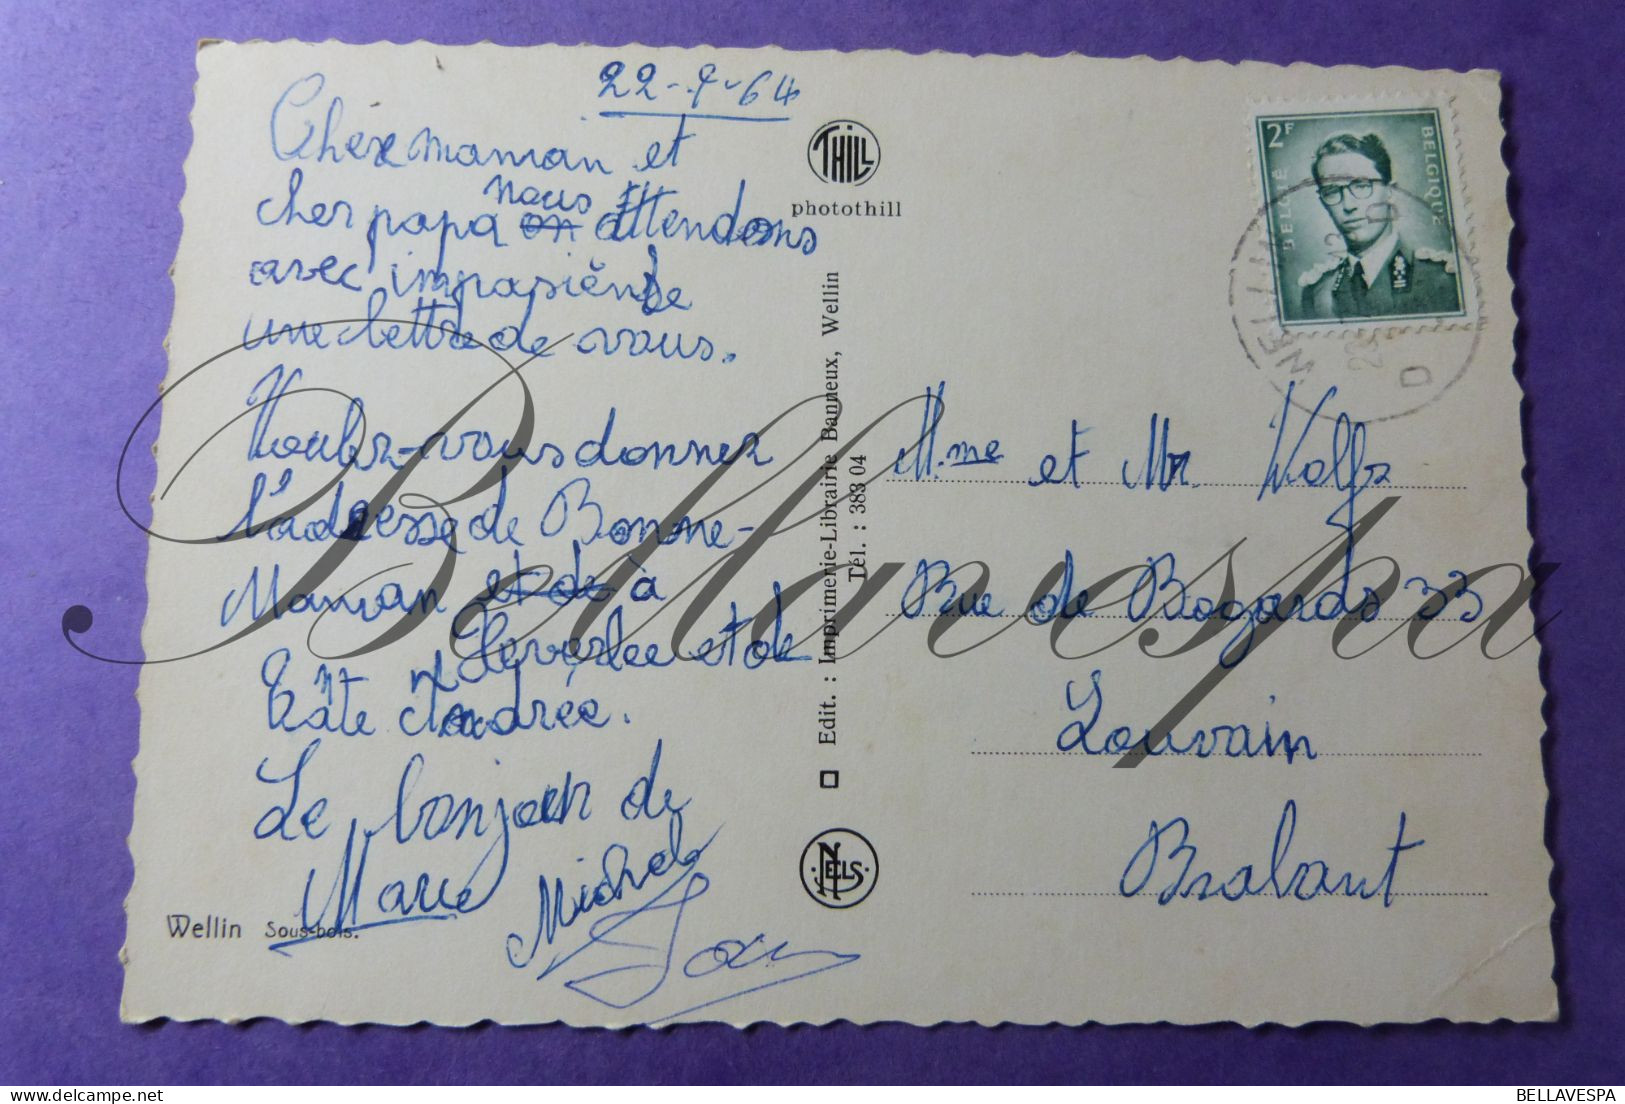 22-7-64
Chère maman et
cher papa on nous attendons
avec impasiënse
une lettre de vous.
Voulez-vous donner
l'adresse de Bonne-
Maman et de à
Heverlee et de
tâte Andrée.
Le bonjour de
Marie
Michel
Wellin Sous-bois.
THILL
photothill
Edit. : Imprimerie-Librairie Banneux, Wellin
Tél. : 383 04
NELS
2F
BELGIË
BELGIQUE
WELLIN
D
Mme et Mr Wolfs
Rue de Bogards 33
Louvain
Brabant
Bellavespa
BELLAVESPA